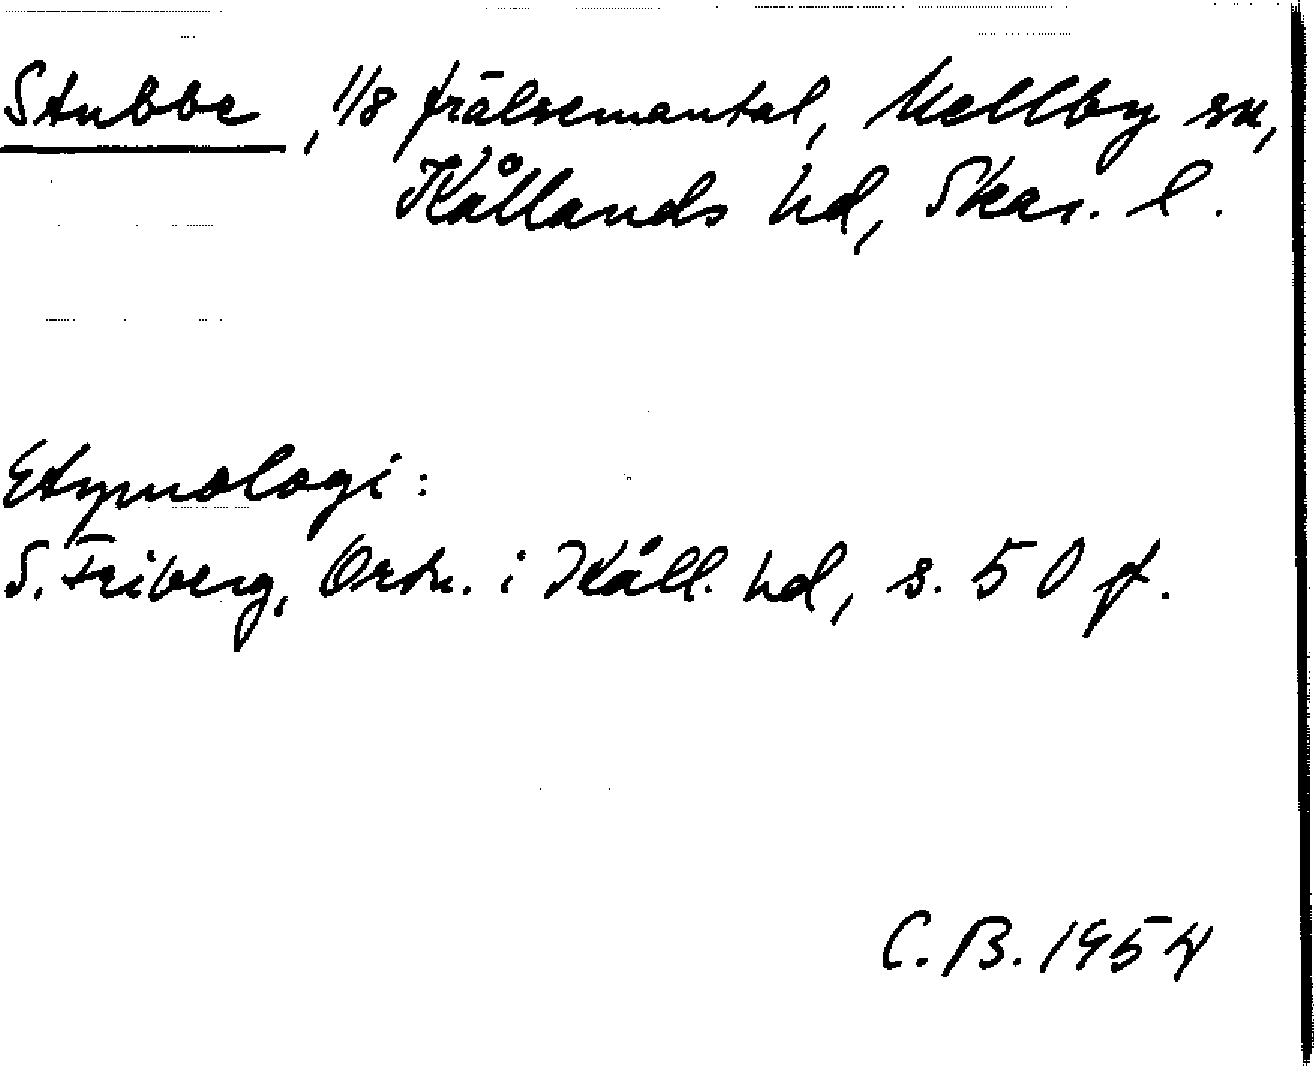 Stubbe, 1/8 frälsemantal, Mellby sn,
Kållands hd, Skar. l.
Etymologi:
S. Friberg, Ortn. i Kåll. hd, s. 50 f.
C. B. 1954